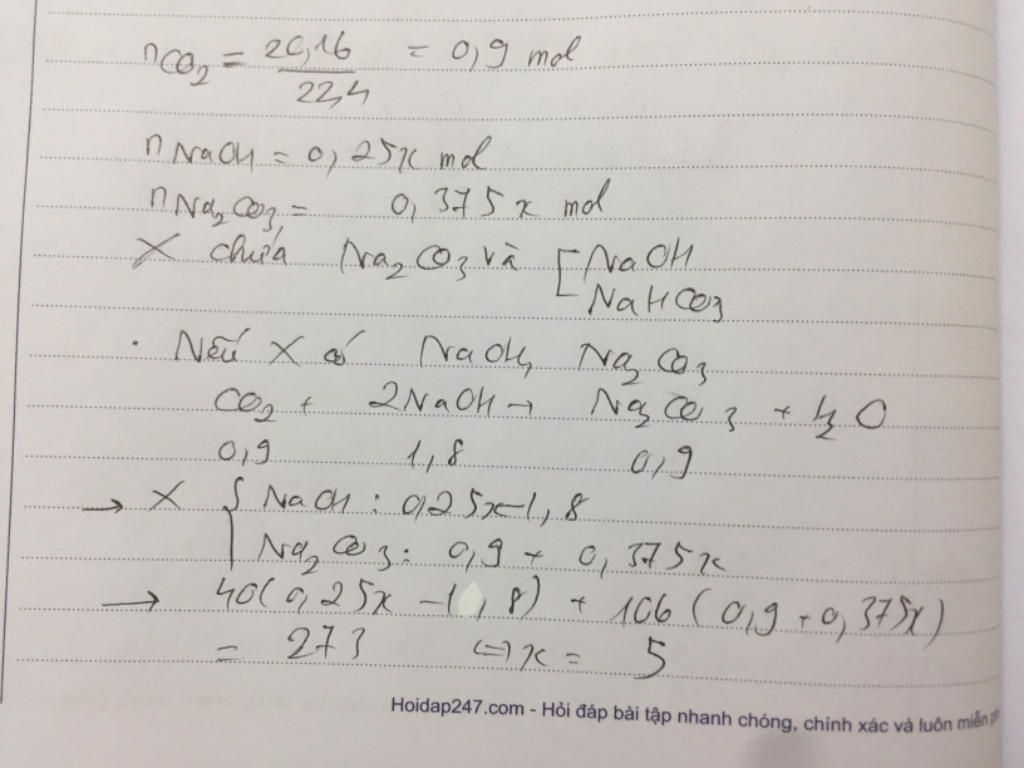 nCO2 = 20,16/22,4 = 0,9 mol
nNaOH = 0,25x mol
nNa2CO3 = 0,375x mol
X chứa Na2CO3 và [ NaOH
NaHCO3
. Nếu X có NaOH, Na2CO3
CO2 + 2NaOH → Na2CO3 + H2O
0,9 1,8 0,9
→ X { NaOH : 0,25x-1,8
Na2CO3 : 0,9 + 0,375x
→ 40(0,25x - 1,8) + 106(0,9 + 0,375x)
= 273 ⇔ x = 5
Hoidap247.com - Hỏi đáp bài tập nhanh chóng, chính xác và luôn miễn